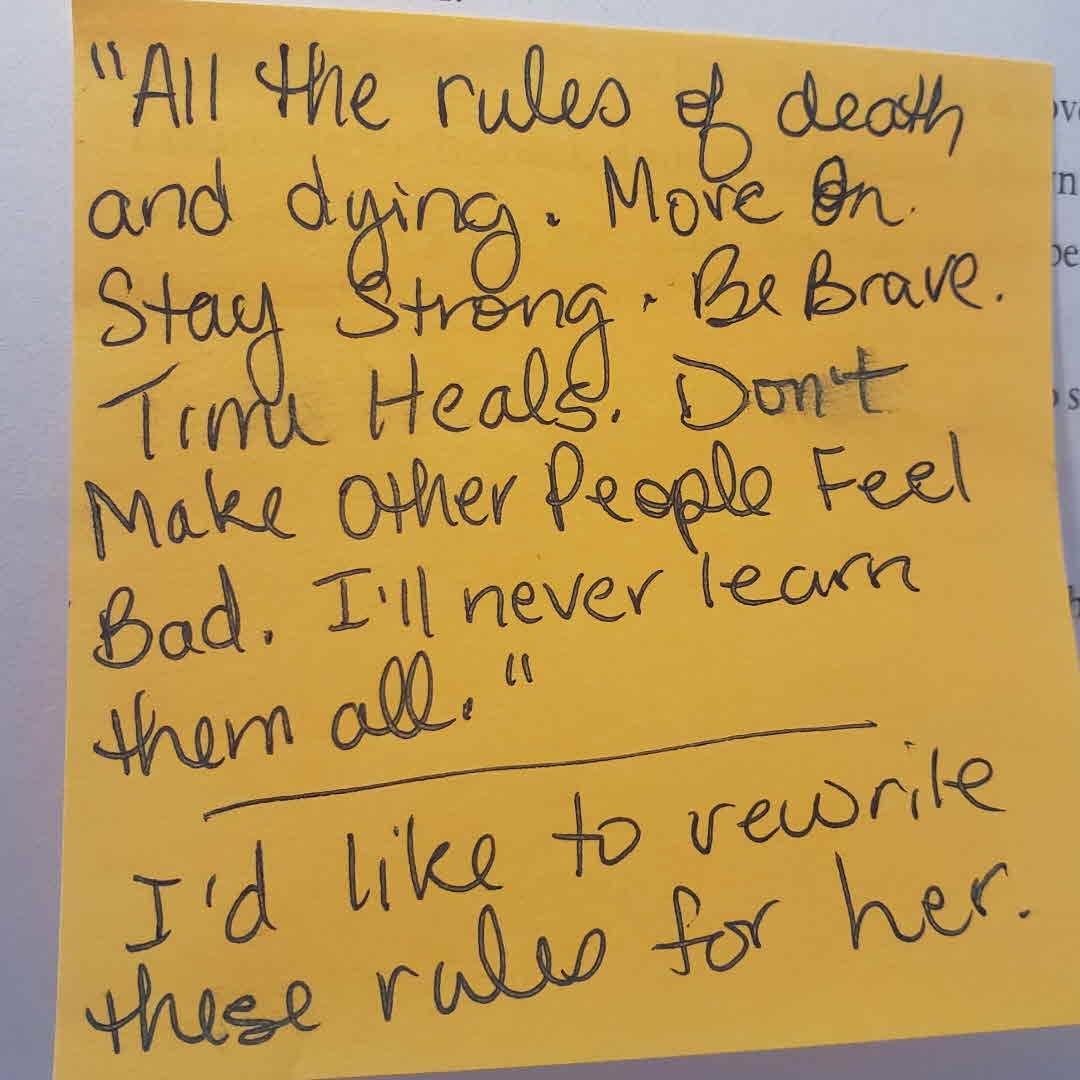 "All the rules of death
and dying. Move On.
Stay Strong. Be Brave.
Time Heals. Don't
Make Other People Feel
Bad. I'll never learn
them all."
I'd like to rewrite
these rules for her.